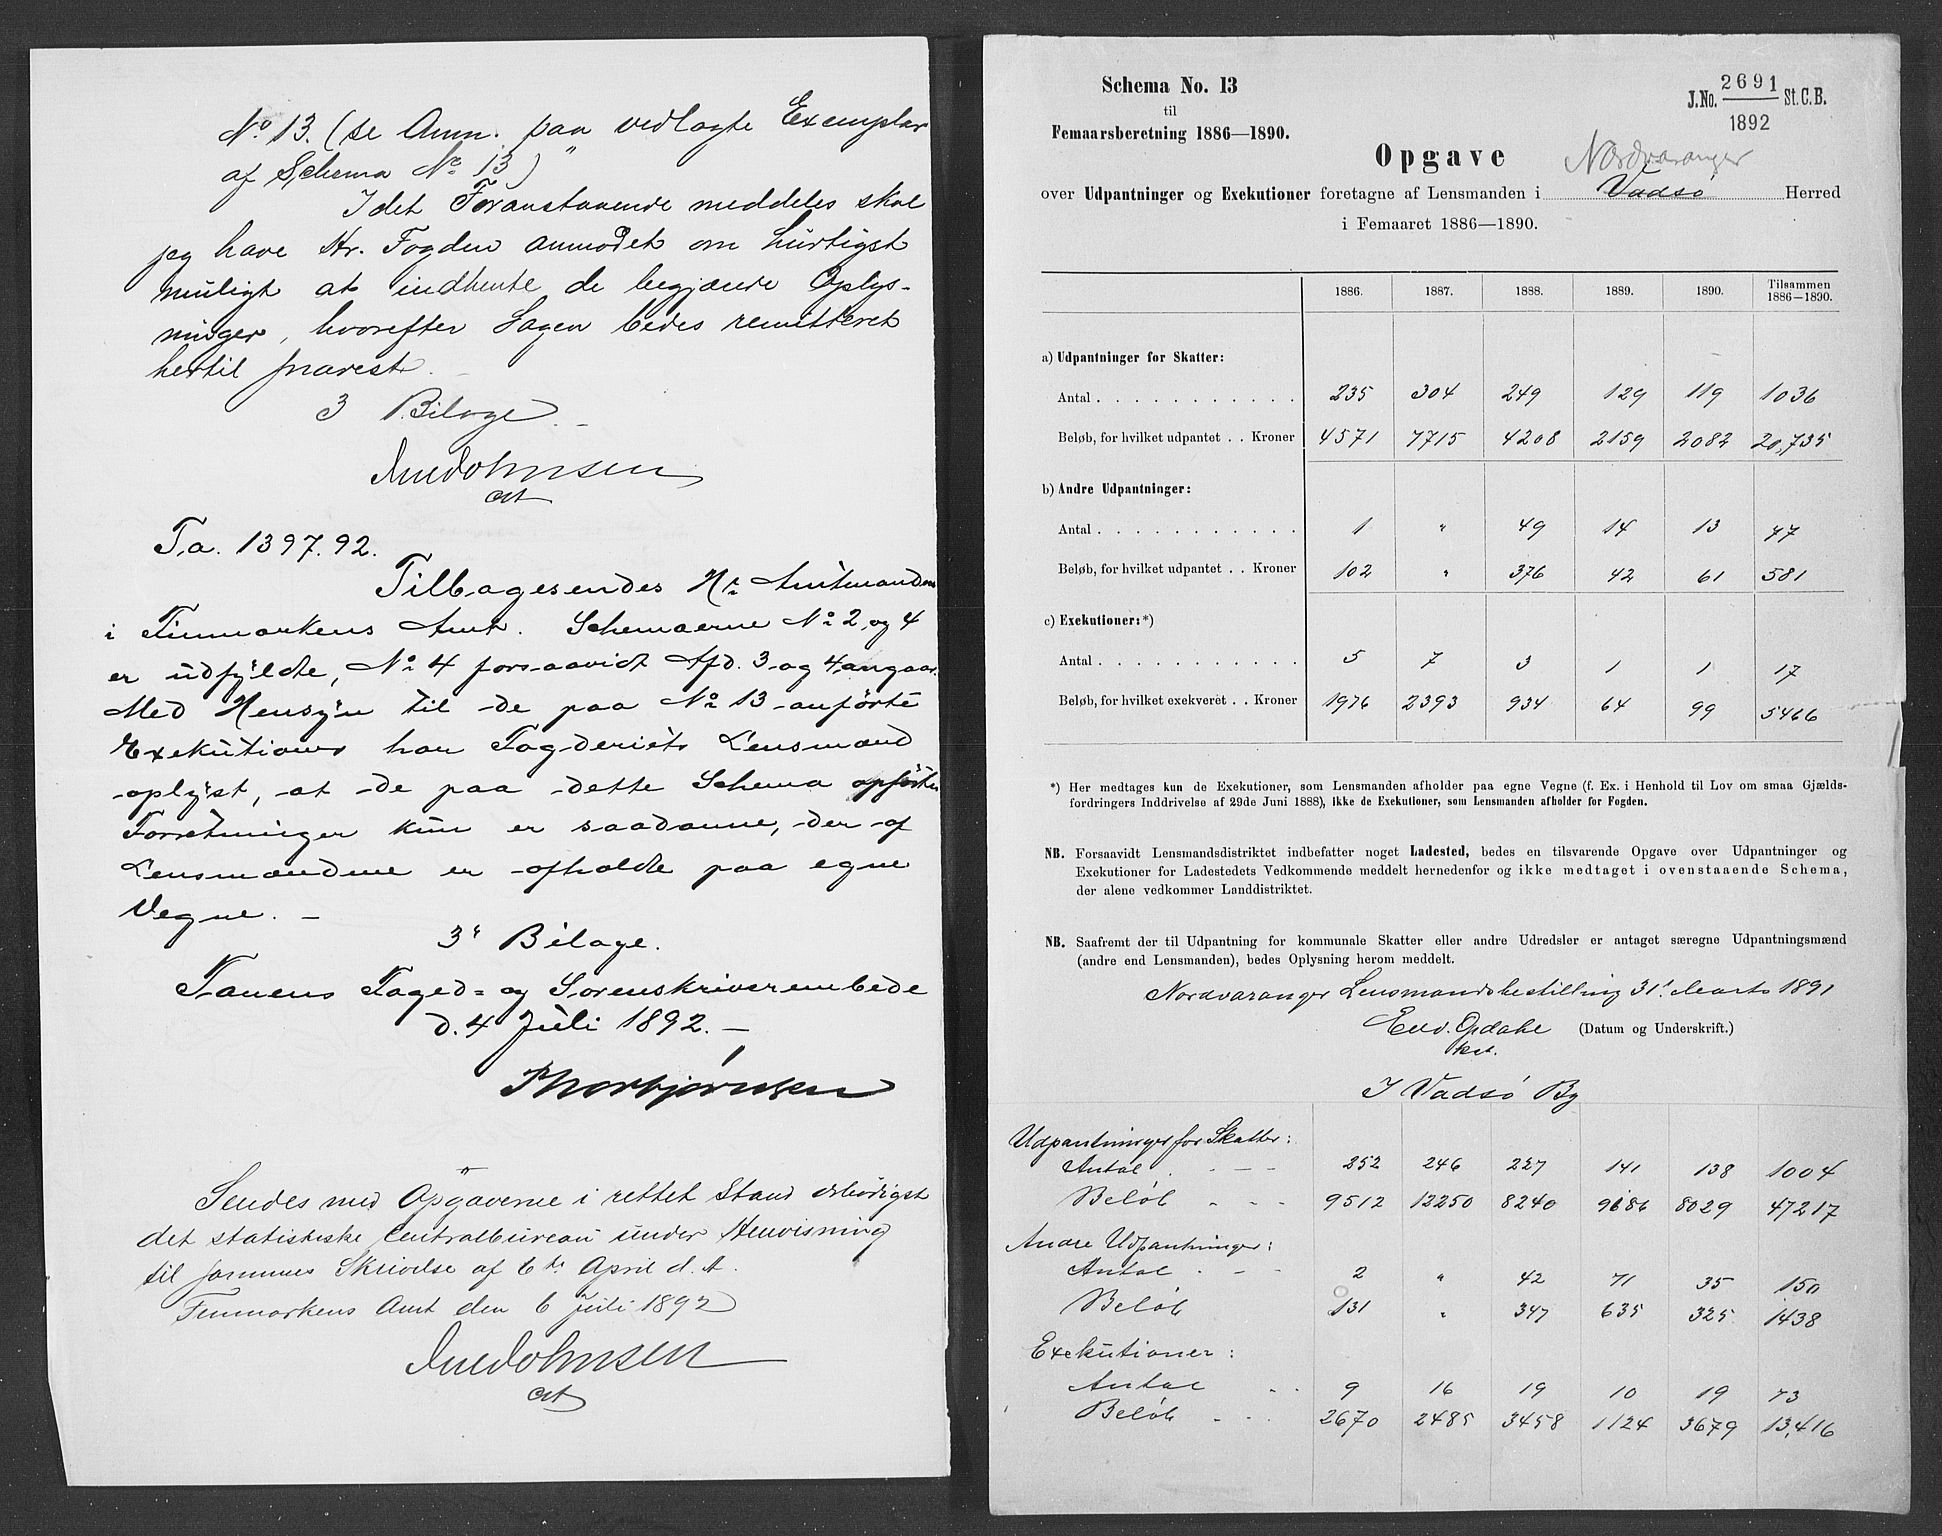 No 13. (se Anm. paa vedlagte Exemplar
af Schema No 13)
Idet Foranstaaende meddeles skal
jeg have Hr. Fogden anmodet om hurtigst
muligt at indhente de begjærede Oplys-
ninger, hvorefter Sagen bedes remitteret
hertil snarest.
3 Bilage.
cst
T.a. 1397.92.
Tilbagesendes Hr. Amtmanden
i Finmarkens Amt. Schemaerne No 2 og 4
er udfyldte, No 4 forsaavidt Afd. 3 og 4 angaar.
Med Hensyn til de paa No 13 anførte
Exekutioner har Fogderiets Lensmænd
oplyst, at de paa dette Schema opførte
Forretninger kun er saadanne, der af
Lensmændene er afholdte paa egne
Vegne. —
3 Bilage.
Tanens Foged- og Sorenskriverembede
d. 4 Juli 1892. —
Thorbjørnsen
Sendes med Opgaverne i rettet Stand ærbødigst
det statistiske Centralbureau under Henvisning
til sammes Skrivelse af 6te April d. A.
Finmarkens Amt den 6 Juli 1892
cst
Schema No. 13
til
Femaarsberetning 1886—1890.
J.No. 2691 St.C.B.
1892
Opgave
Nordvaranger
over Udpantninger og Exekutioner foretagne af Lensmanden i Vadsø Herred
i Femaaret 1886—1890.
1886. 1887. 1888. 1889. 1890. Tilsammen 1886—1890.
a) Udpantninger for Skatter:
Antal . . . . . . . . . . . 235 304 249 129 119 1036
Beløb, for hvilket udpantet . . Kroner 4571 7715 4208 2159 2082 20,735
b) Andre Udpantninger:
Antal . . . . . . . . . . . 1 " 49 14 13 77
Beløb, for hvilket udpantet . . Kroner 102 " 376 42 61 581
c) Exekutioner:*)
Antal . . . . . . . . . . . 5 7 3 1 1 17
Beløb, for hvilket exekveret . . Kroner 1976 2393 934 64 99 5466
*) Her medtages kun de Exekutioner, som Lensmanden afholder paa egne Vegne (f. Ex. i Henhold til Lov om smaa Gjælds-
fordringers Inddrivelse af 29de Juni 1888), ikke de Exekutioner, som Lensmanden afholder for Fogden.
NB. Forsaavidt Lensmandsdistriktet indbefatter noget Ladested, bedes en tilsvarende Opgave over Udpantninger og
Exekutioner for Ladestedets Vedkommende meddelt hernedenfor og ikke medtaget i ovenstaaende Schema,
der alene vedkommer Landdistriktet.
NB. Saafremt der til Udpantning for kommunale Skatter eller andre Udredsler er antaget særegne Udpantningsmænd
(andre end Lensmanden), bedes Oplysning herom meddelt.
Nordvaranger Lensmandsbestilling 31. Marts 1891
Edv. Opdahl (Datum og Underskrift.)
kst.
I Vadsø By
Udpantninger for Skatter:
Antal . - — — 252 246 227 141 138 1004
Beløb - - - 9512 12250 8240 9186 8029 47217
Andre Udpantninger:
Antal . - — 2 " 42 71 35 150
Beløb 131 " 347 635 325 1438
Exekutioner:
Antal . . 9 16 19 10 19 73
Beløb - . . 2670 2485 3458 1124 3679 13,416